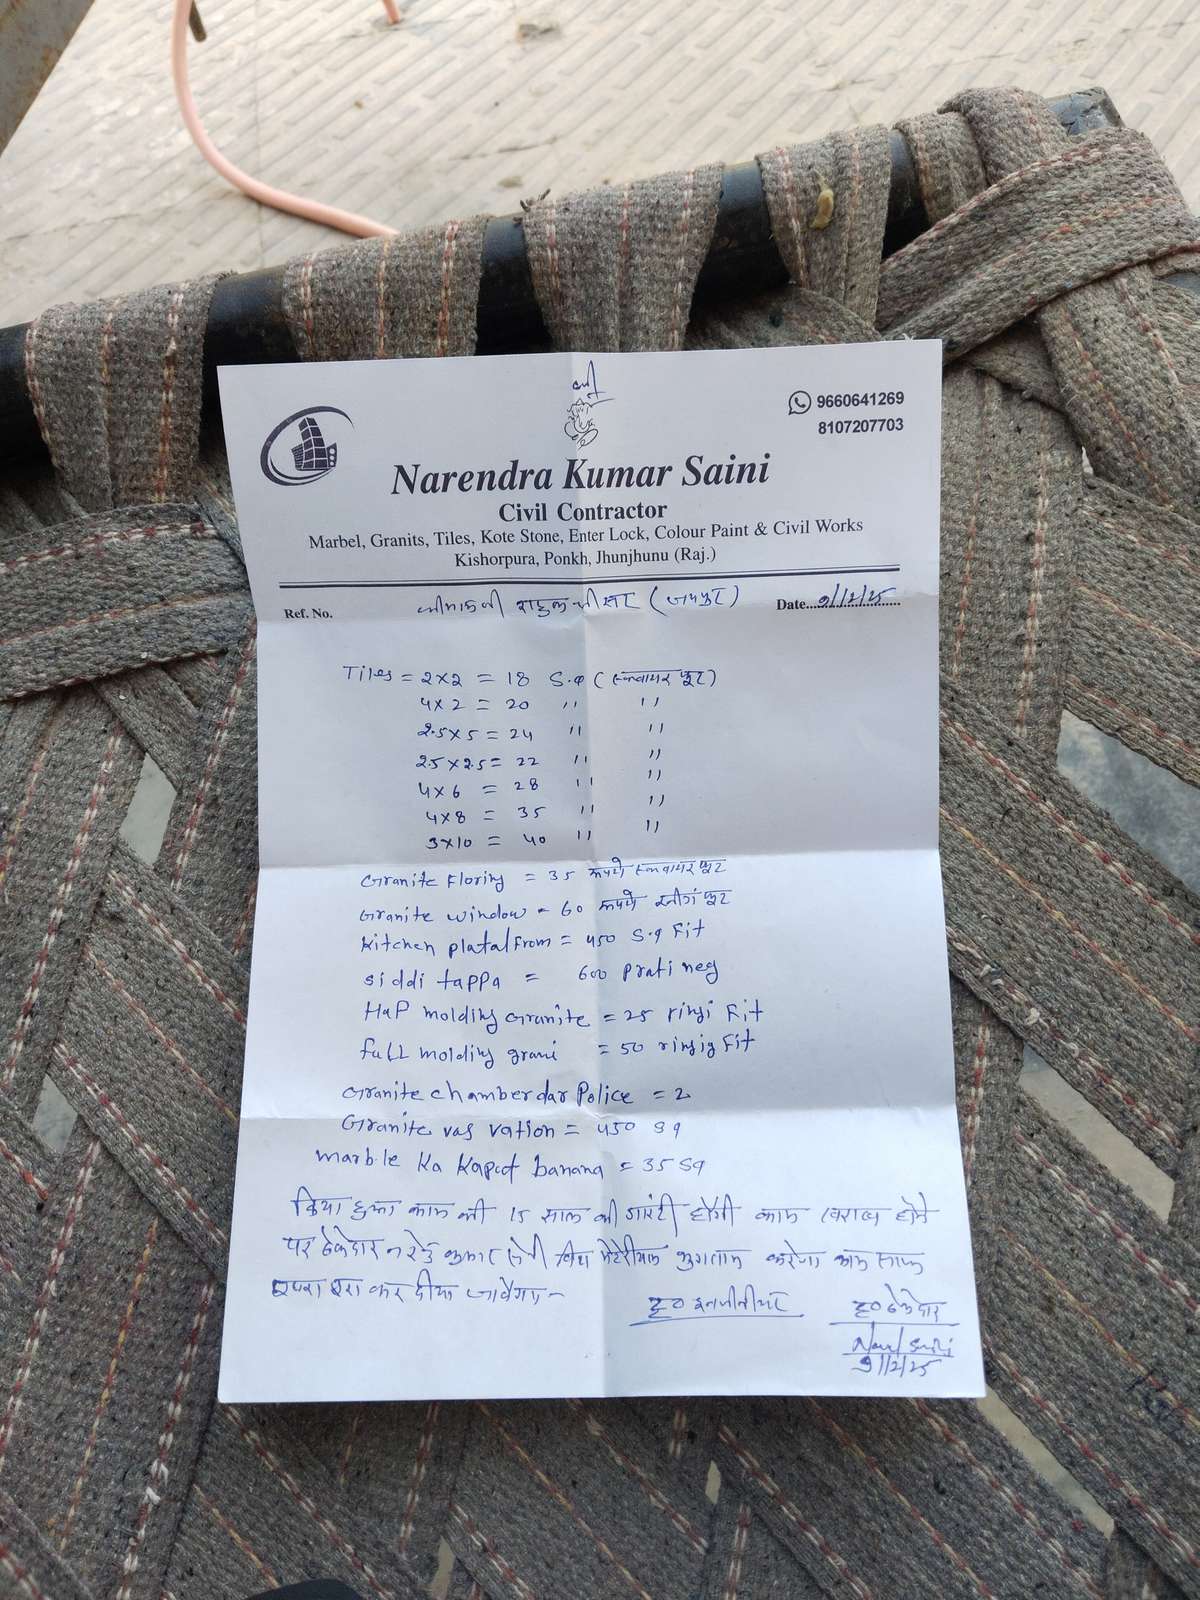 9660641269
8107207703
Narendra Kumar Saini
Civil Contractor
Marbel, Granits, Tiles, Kote Stone, Enter Lock, Colour Paint & Civil Works
Kishorpura, Ponkh, Jhunjhunu (Raj.)
Ref. No. श्रीमान जी राहुल जी सर (जयपुर) Date....9/12/25
Tiles = 2×2 = 18 S.q (स्क्वायर फूट)
4×2 = 20 " "
2.5×5 = 24 " "
2.5×2.5 = 22 " "
4×6 = 28 " "
4×8 = 35 " "
3×10 = 40 " "
Granite Floring = 35 रूपये स्क्वायर फूट
Granite window = 60 रूपये रनींग फूट
Kitchen platalfrom = 450 S.q Fit
siddi tappa = 600 prati neg
Haf molding Granite = 25 ringi Fit
full molding grani = 50 ringig Fit
Granite chamberdar Police = 2
Granite vas vation = 450 sq
marble ka kapot banana = 35 sq
किया हुआ काम की 15 साल की गारंटी होगी काम खराब होने
पर ठेकेदार नरेंद्र कुमार सैनी विथ मेटेरीयल भुगतान करेगा काम साफ
सुथरा करा कर दीया जावेगा-
ह० इनजीनीयर ह० ठेकेदार
Saini
9/12/25